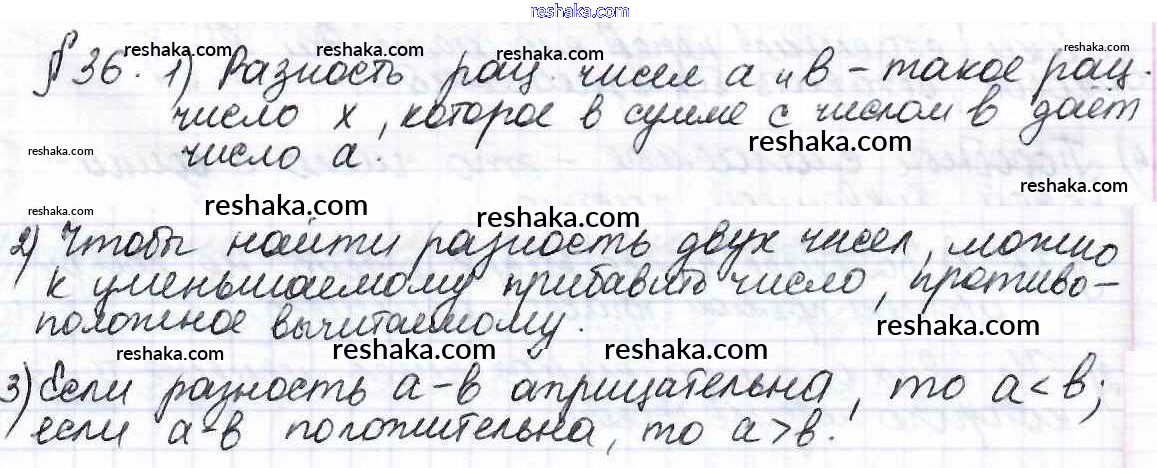 reshaka.com
§ 36. 1) Разность рац. чисел а и в – такое рац.
число х, которое в сумме с числом в даёт
число а.
2) Чтобы найти разность двух чисел, можно
к уменьшаемому прибавить число, противо-
положное вычитаемому.
3) Если разность а-в отрицательна, то а < в;
если а-в положительна, то а > в.
reshaka.com
reshaka.com
reshaka.com
reshaka.com
reshaka.com
reshaka.com
reshaka.com
reshaka.com
reshaka.com
reshaka.com
reshaka.com
reshaka.com
reshaka.com